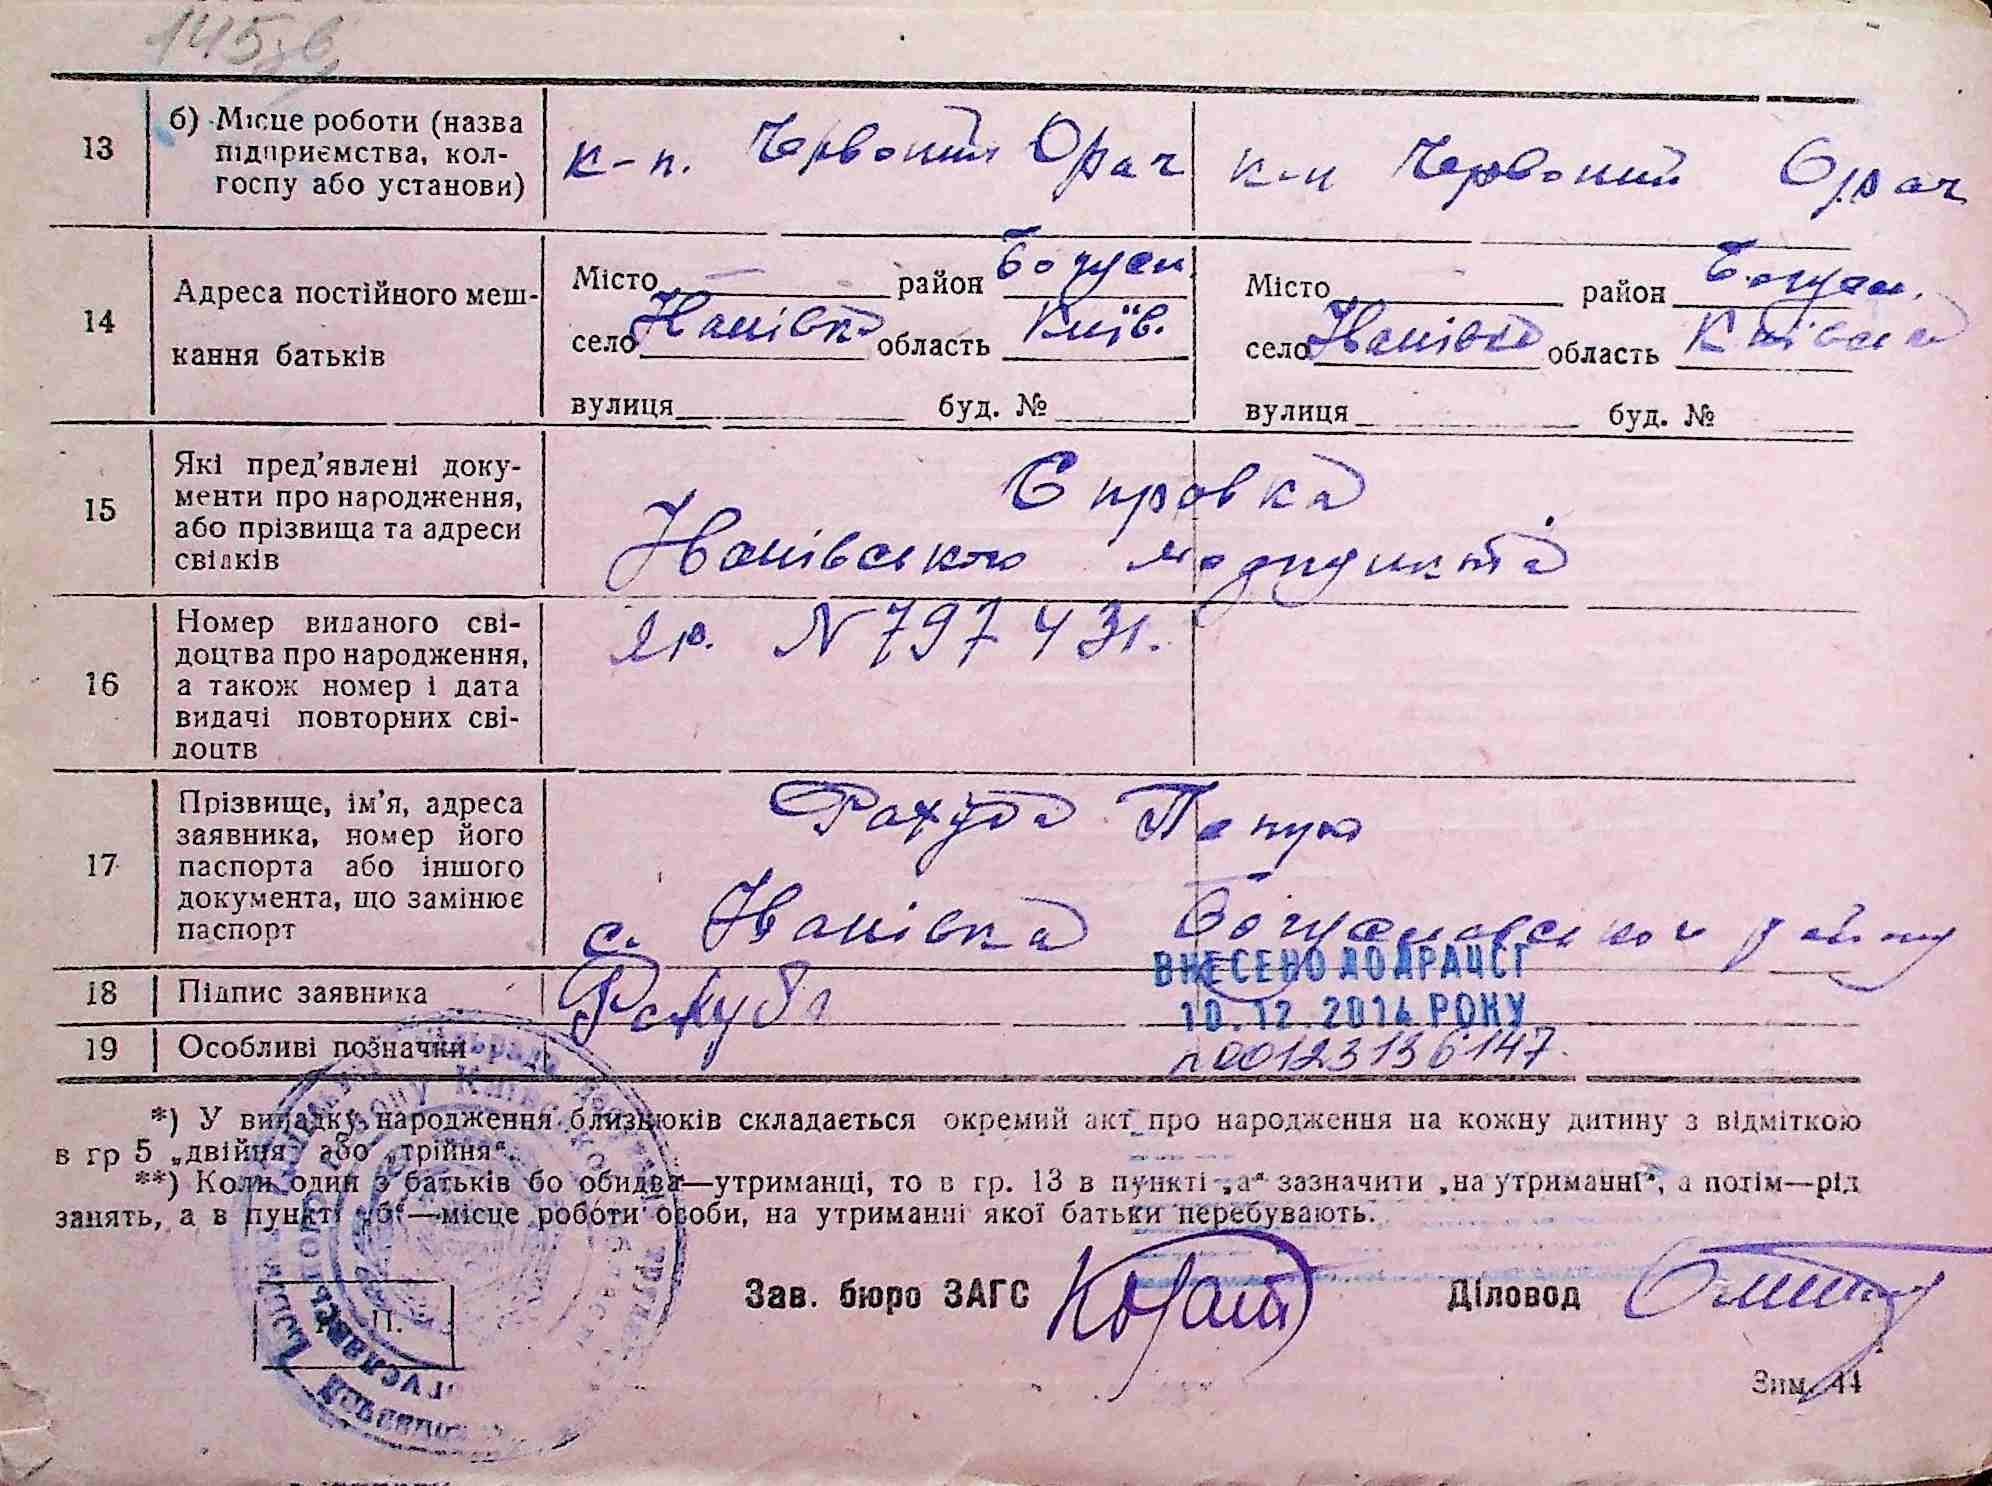 145зв.
13
б) Місце роботи (назва
підприємства, кол-
госпу або установи)
к-п. Червоний Орач
к-п Червоний Орач
14
Адреса постійного меш-
кання батьків
Місто — район Богусл.
село Іванівка область Київ.
вулиця буд. №
Місто район Богусл.
село Іванівка область Київська
вулиця буд. №
15
Які пред'явлені доку-
менти про народження,
або прізвища та адреси
свідків
Справка
Іванівського медпункта
16
Номер виданого сві-
доцтва про народження,
а також номер і дата
видачі повторних сві-
доцтв
Яр. N 797431.
17
Прізвище, ім'я, адреса
заявника, номер його
паспорта або іншого
документа, що замінює
паспорт
Рахуба
с. Іванівка Богуславського району
18
Підпис заявника
Рахуба
ВНЕСЕНО ДО ДРАЦСГ
10.12.2014 РОКУ
19
Особливі позначки
n00123136147.
*) У випадку народження близнюків складається окремий акт про народження на кожну дитину з відміткою
в гр 5 „двійня" або „трійня".
**) Коли один з батьків бо обидва—утриманці, то в гр. 13 в пункті „а" зазначити „на утриманні", а потім—рід
занять, а в пункті „б"—місце роботи особи, на утриманні якої батьки перебувають.
Зав. бюро ЗАГС
Діловод
П.
Зим. 44